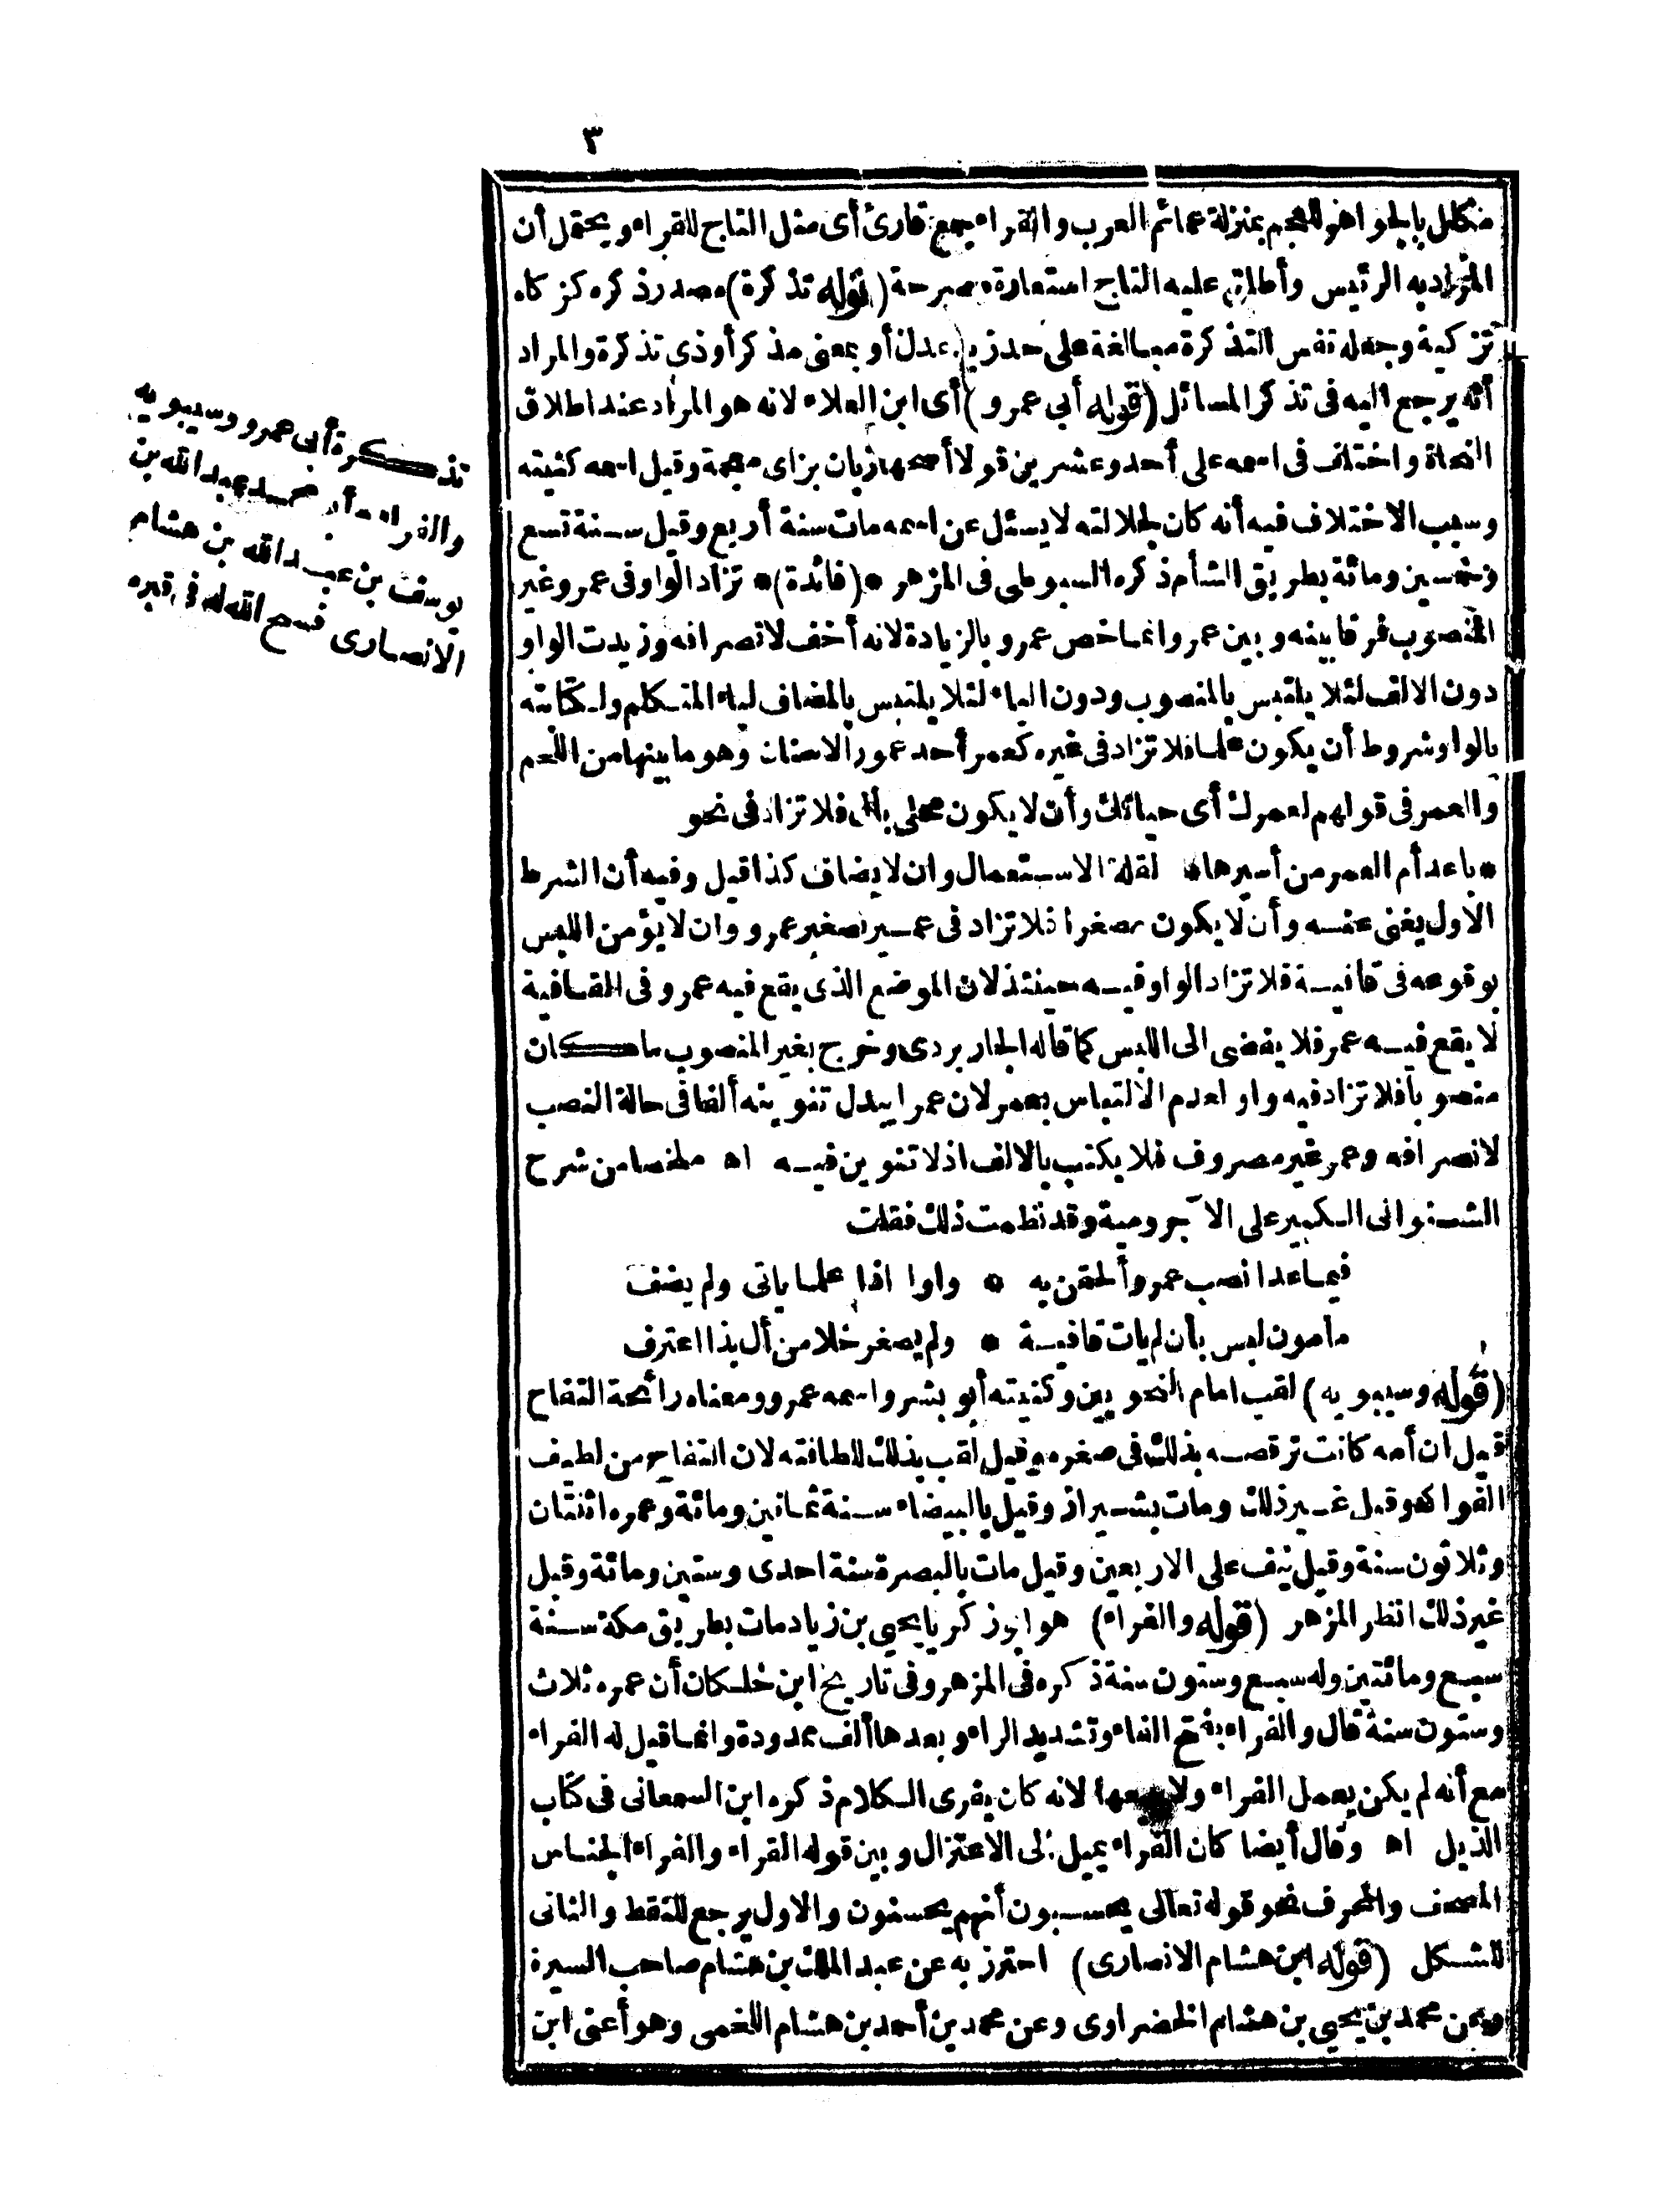 ٣
مكلل بالجواهر للعجم بمنزلة عمائم العرب والقراء جمع قارئ أى مثل التاج للقراء ويحتمل أن
المراد به الرئيس وأطلق عليه التاج استعارة مصرحة (قوله تذكرة) مصدر ذكره كزكاه
تزكية وجعله نفس التذكرة مبالغة على حد زيد عدل أو بمعنى مذكر أو ذى تذكرة والمراد
أنه يرجع اليه فى تذكر المسائل (قوله أبى عمرو) أى ابن العلاء لانه هو المراد عند اطلاق
النحاة واختلف فى اسمه على أحد وعشرين قولا أصحها زبان بزاى معجمة وقيل اسمه كنيته
وسبب الاختلاف فيه أنه كان لجلالته لا يسئل عن اسمه مات سنة أربع وقيل سنة تسع
وخمسين ومائة بطريق الشأم ذكره السيوطى فى المزهر *(فائدة)* تزاد الواو فى عمرو غير
المنصوب فرقا بينه وبين عمر وانما خص عمرو بالزيادة لانه أخف لانصرافه وزيدت الواو
دون الالف لئلا يلتبس بالمنصوب ودون الياء لئلا يلتبس بالمضاف لياء المتكلم ولكتابته
بالواو شروط أن يكون علما فلا تزاد فى غيره كعمر أحد عمور الاسنان وهو ما بينها من اللحم
والعمر فى قولهم لعمرك أى حياتك وأن لا يكون محلى بأل فلا تزاد فى نحو
* باعد أم العمر من أسيرها * لقلة الاستعمال وان لا يضاف كذا قيل وفيه أن الشرط
الاول يغنى عنه وأن لا يكون مصغرا فلا تزاد فى عمير تصغير عمرو وان لا يؤمن اللبس
بوقوعه فى قافية فلا تزاد الواو فيه حينئذ لان الموضع الذى يقع فيه عمرو فى القافية
لا يقع فيه عمر فلا يفضى الى اللبس كما قاله الجاربردى وخرج بغير المنصوب ما كان
منصوبا فلا تزاد فيه واو لعدم الالتباس بعمر لان عمرا يبدل تنوينه ألفا فى حالة النصب
لانصرافه وعمر غير مصروف فلا يكتب بالالف اذ لا تنوين فيه اه ملخصا من شرح
الشنوانى الكبير على الآجرومية وقد نظمت ذلك فقلت
فيما عدا نصب عمرو ألحقن به * واوا اذا علما ياتى ولم يضف
مامون لبس بأن لم يات قافية * ولم يصغر خلا من أل بذا اعترف
(قوله وسيبويه) لقب امام النحويين وكنيته أبو بشر واسمه عمرو ومعناه رائحة التفاح
قيل ان أمه كانت ترقصه بذلك فى صغره وقيل لقب بذلك للطافته لان التفاح من لطيف
الفواكه وقيل غير ذلك ومات بشيراز وقيل بالبيضاء سنة ثمانين ومائة وعمره اثنتان
وثلاثون سنة وقيل نيف على الاربعين وقيل مات بالبصرة سنة احدى وستين ومائة وقيل
غير ذلك انظر المزهر (قوله والفراء) هو أبو زكريا يحيى بن زياد مات بطريق مكة سنة
سبع ومائتين وله سبع وستون سنة ذكره فى المزهر وفى تاريخ ابن خلكان أن عمره ثلاث
وستون سنة قال والفراء بفتح الفاء وتشديد الراء وبعدها ألف ممدودة وانما قيل له الفراء
مع أنه لم يكن يعمل الفراء ولا يبيعها لانه كان يفرى الكلام ذكره ابن السمعانى فى كتاب
الذيل اه وقال أيضا كان الفراء يميل الى الاعتزال وبين قوله القراء والفراء الجناس
المصحف والمحرف نحو قوله تعالى يحسبون أنهم يحسنون والاول يرجع للنقط والثانى
للشكل (قوله ابن هشام الانصارى) احترز به عن عبد الملك بن هشام صاحب السيرة
وعن محمد بن يحيى بن هشام الخضراوى وعن محمد بن أحمد بن هشام اللخمى وهو أعنى ابن
تذكرة أبى عمرو وسيبويه
والفراء أبى محمد عبد الله بن
يوسف بن عبد الله بن هشام
الانصارى فسح الله له فى قبره